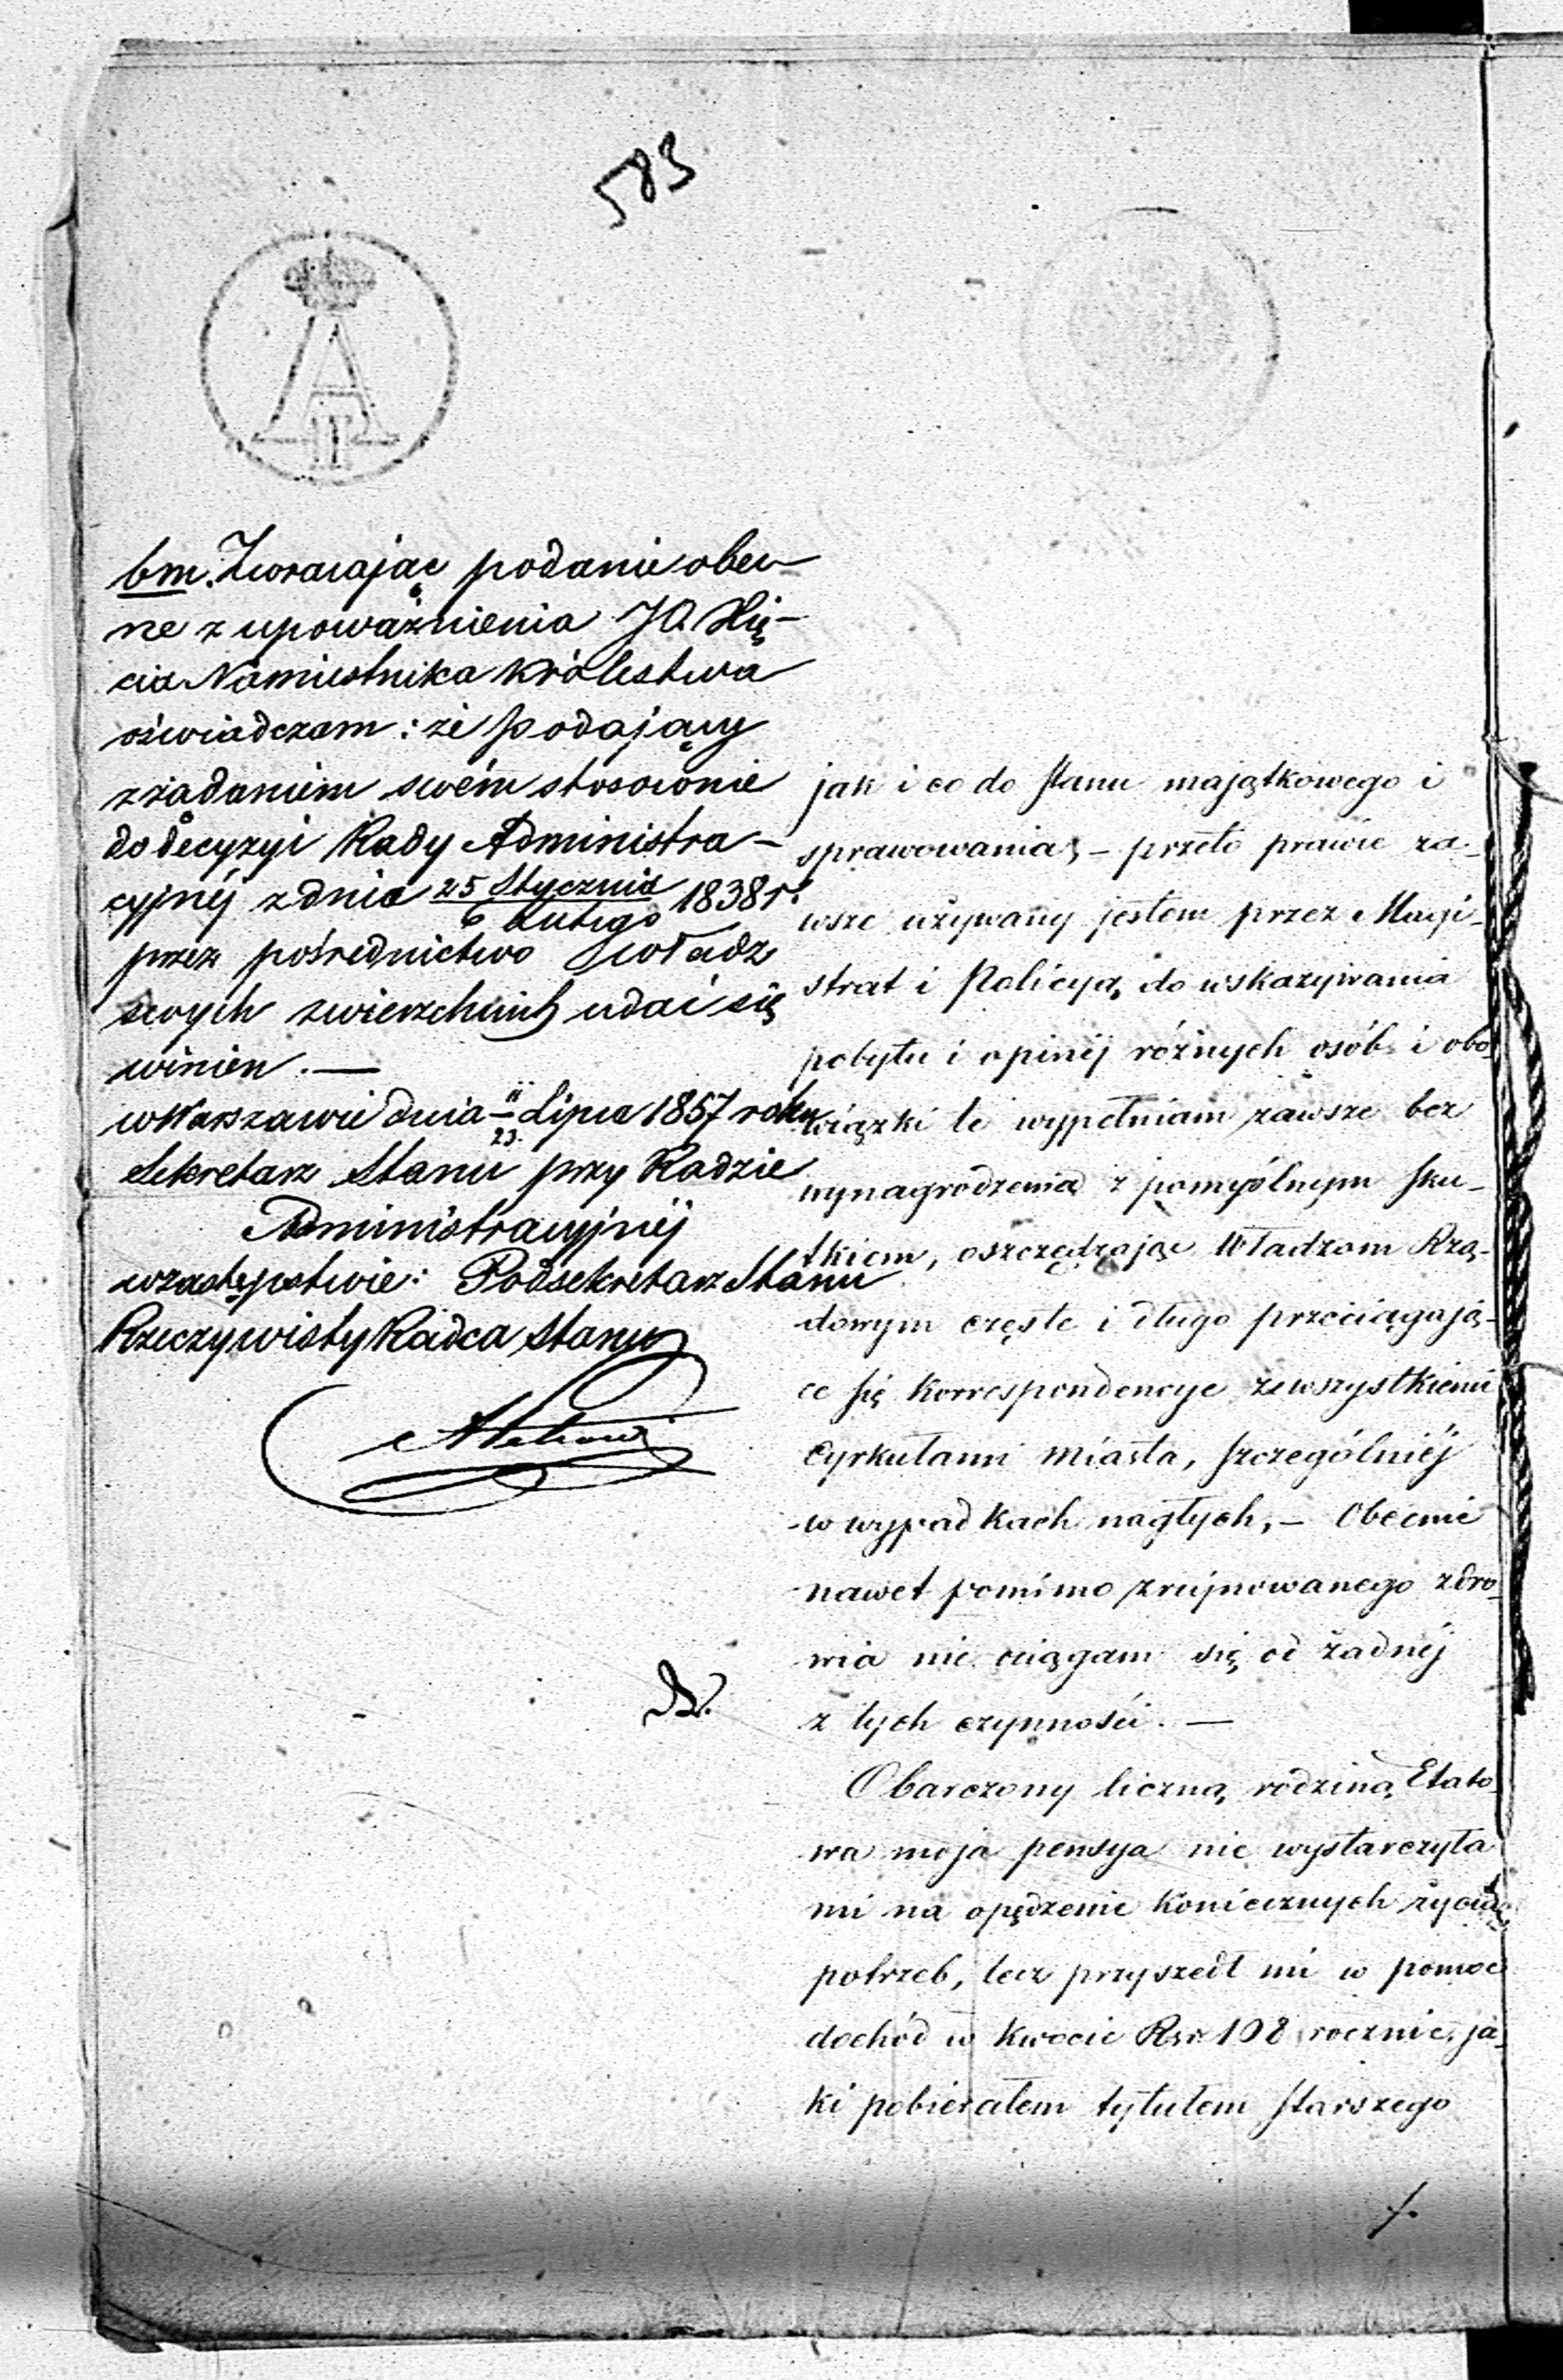 583
A II
bm. Zwracając podanie obec-
ne z upoważnienia JO. Xię-
cia Namiestnika Królestwa
oświadczam: że podający
z żądaniem swém stosownie
do decyzyi Rady Administra-
cyjnéj z dnia 25 Stycznia / 6 Lutego 1838 r.
przez pośrednictwo władz
swych zwierzchnich udać się
winien. —
w Warszawie dnia 11/23. Lipca 1857 roku
Sekretarz Stanu przy Radzie
Administracyjnéj
w zastępstwie: Podsekretarz Stanu
Rzeczywisty Radca Stanu
jak i co do stanu majątkowego i
sprawowania, – przeto prawie za-
wsze używany jestem przez Magi-
strat i Policyą, do wskazywania
pobytu i opinij różnych osób i obo
wiązki te wypełniam zawsze bez
wynagrodzenia z pomyślnym sku-
tkiem, oszczędzając Władzom Rzą-
dowym częste i długo przeciągają-
ce się korrespondencye ze wszystkiemi
Cyrkułami miasta, szczególniéj
w wypadkach nagłych, – Obecnie
nawet pomimo zrujnowanego zdro-
wia nie ociągam się od żadnéj
z tych czynności. —
Obarczony liczną rodziną, Etato-
wa moja pensya nie wystarczyła
mi na opędzenie koniecznych życia
potrzeb, lecz przyszedł mi w pomoc
dochód w kwocie Rsr. 108 rocznie, ja-
ki pobierałem tytułem starszego
./.